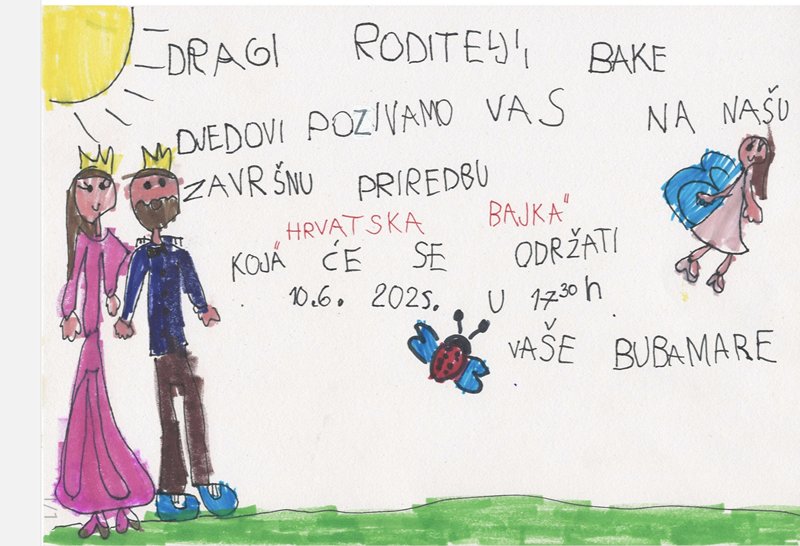 DRAGI RODITELJI, BAKE
DJEDOVI POZIVAMO VAS NA NAŠU
ZAVRŠNU PRIREDBU
"HRVATSKA BAJKA"
KOJA ĆE SE ODRŽATI
10.6. 2025. U 17³⁰h
VAŠE BUBAMARE